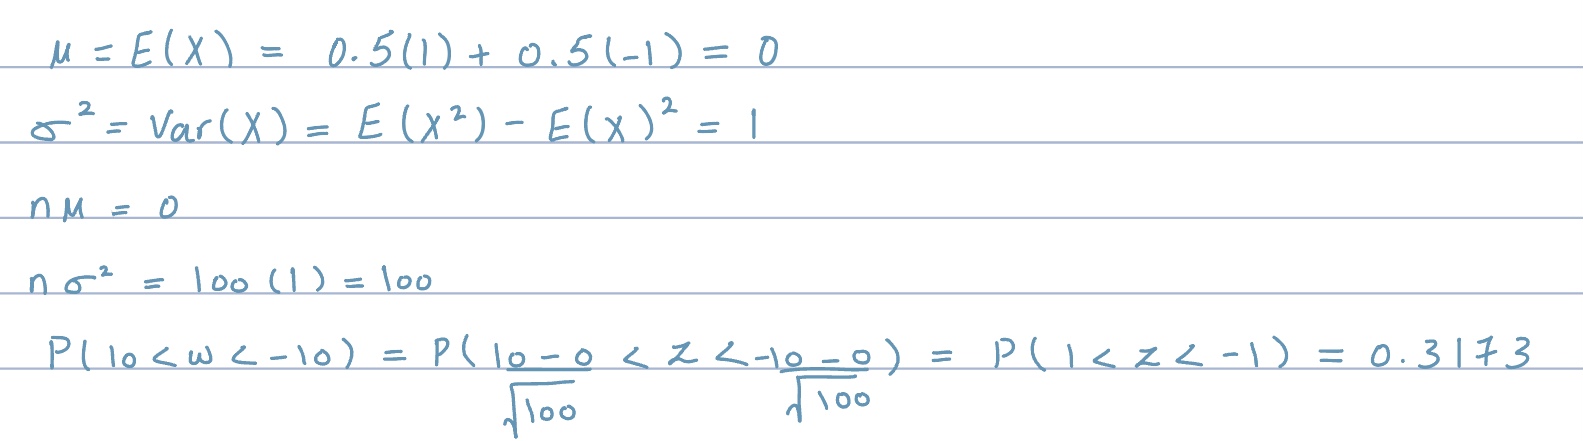 μ = E(X) = 0.5(1) + 0.5(-1) = 0
σ² = Var(X) = E(X²) - E(X)² = 1
nμ = 0
nσ² = 100(1) = 100
P(10 < w < -10) = P((10-0)/√100 < z < (-10-0)/√100) = P(1 < z < -1) = 0.3173